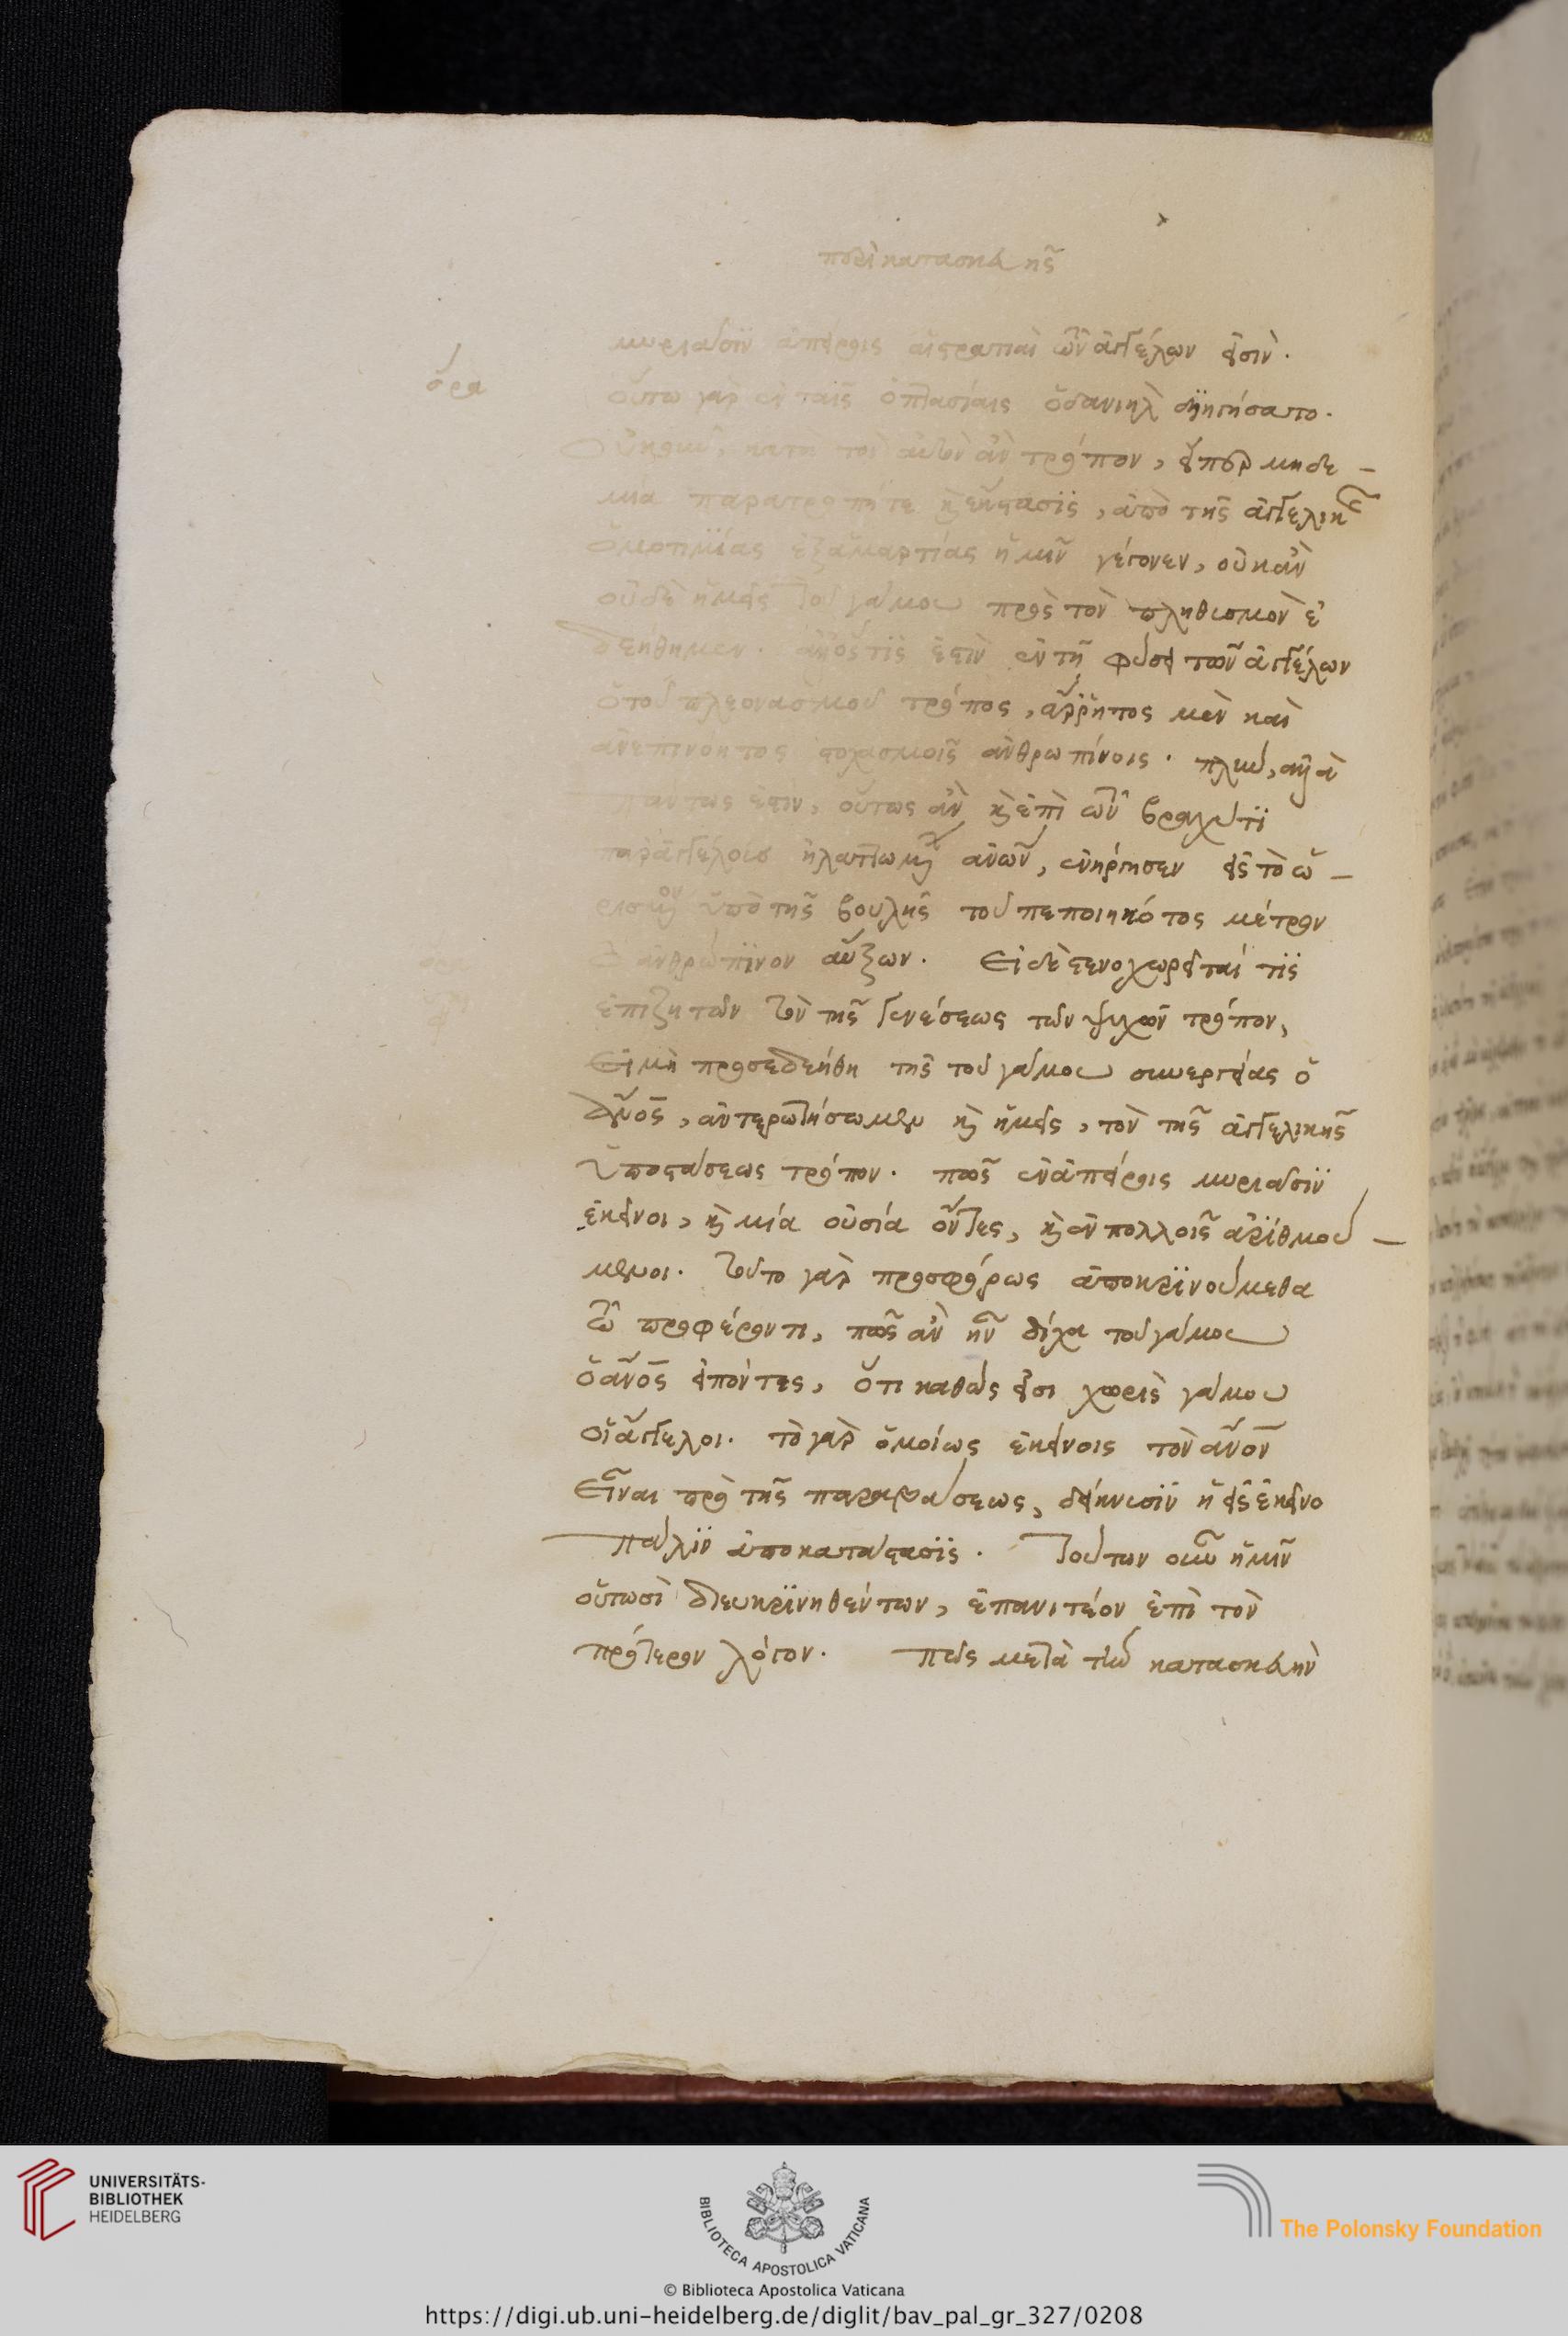 περὶ κατασκευῆς
μυριάσιν ἀπείροις αἱ στρατιαὶ τῶν ἀγγέλων εἰσίν.
ὅρα
οὕτω γὰρ ἐν ταῖς ὀπτασίαις ὁ δανιὴλ διηγήσατο.
Οὐκοῦν, κατὰ τὸν αὐτὸν ἂν τρόπον, εἴπερ μηδε -
μία παρατροπή τε καὶ ἔκστασις, ἀπὸ τῆς ἀγγελικῆς
ὁμοτιμίας ἐξ ἁμαρτίας ἡμῖν γέγονεν, οὐκ ἂν
οὐδὲ ἡμεῖς τοῦ γάμου πρὸς τὸν πληθυσμὸν ἐ
δεήθημεν. ἀλλ' ὅστις ἐστὶν ἐν τῇ φύσει τῶν ἀγγέλων
ὁ τοῦ πλεονασμοῦ τρόπος, ἄρρητος μὲν καὶ
ἀνεπινόητος στοχασμοῖς ἀνθρωπίνοις. πλὴν, ἀλλὰ
πάντως ἐστὶν, οὕτως ἂν καὶ ἐπὶ τῶν βραχύ τι
παρ' ἀγγέλους ἠλαττωμένων ἀνων, ἐνήργησεν εἰς τὸ ὡ -
ρισμένον ὑπὸ τῆς βουλῆς τοῦ πεποιηκότος μέτρον
τὸ ἀνθρώπινον αὔξων. Εἰ δὲ στενοχωρεῖταί τις
ἐπιζητῶν τὸν τῆς γενέσεως τῶν ψυχῶν τρόπον,
Εἰ μὴ προσεδεήθη τῆς τοῦ γάμου συνεργείας ὁ
ἄνος, ἀντερωτήσωμεν καὶ ἡμεῖς, τὸν τῆς ἀγγελικῆς
ὑποστάσεως τρόπον. πῶς ἐν ἀπείροις μυριάσιν
ἐκεῖνοι, καὶ μία οὐσία ὄντες, καὶ ἐν πολλοῖς ἀριθμού -
μενοι. τοῦτο γὰρ προσφόρως ἀποκρινούμεθα
τῷ προφέροντι, πῶς ἂν ἦν δίχα τοῦ γάμου
ὁ ἄνος εἰπόντες, ὅτι καθώς εἰσι χωρὶς γάμου
οἱ ἄγγελοι. τὸ γὰρ ὁμοίως ἐκείνοις τὸν ἄνον
Εἶναι πρὸ τῆς παραβάσεως, δείκνυσιν ἡ εἰς ἐκεῖνο
πάλιν ἀποκατάστασις. Τούτων οὖν ἡμῖν
οὑτωσὶ διευκρινηθέντων, ἐπανιτέον ἐπὶ τὸν
πρότερον λόγον. πῶς μετὰ τὴν κατασκευὴν
UNIVERSITÄTS-
BIBLIOTHEK
HEIDELBERG
BIBLIOTECA APOSTOLICA VATICANA
The Polonsky Foundation
© Biblioteca Apostolica Vaticana
https://digi.ub.uni-heidelberg.de/diglit/bav_pal_gr_327/0208